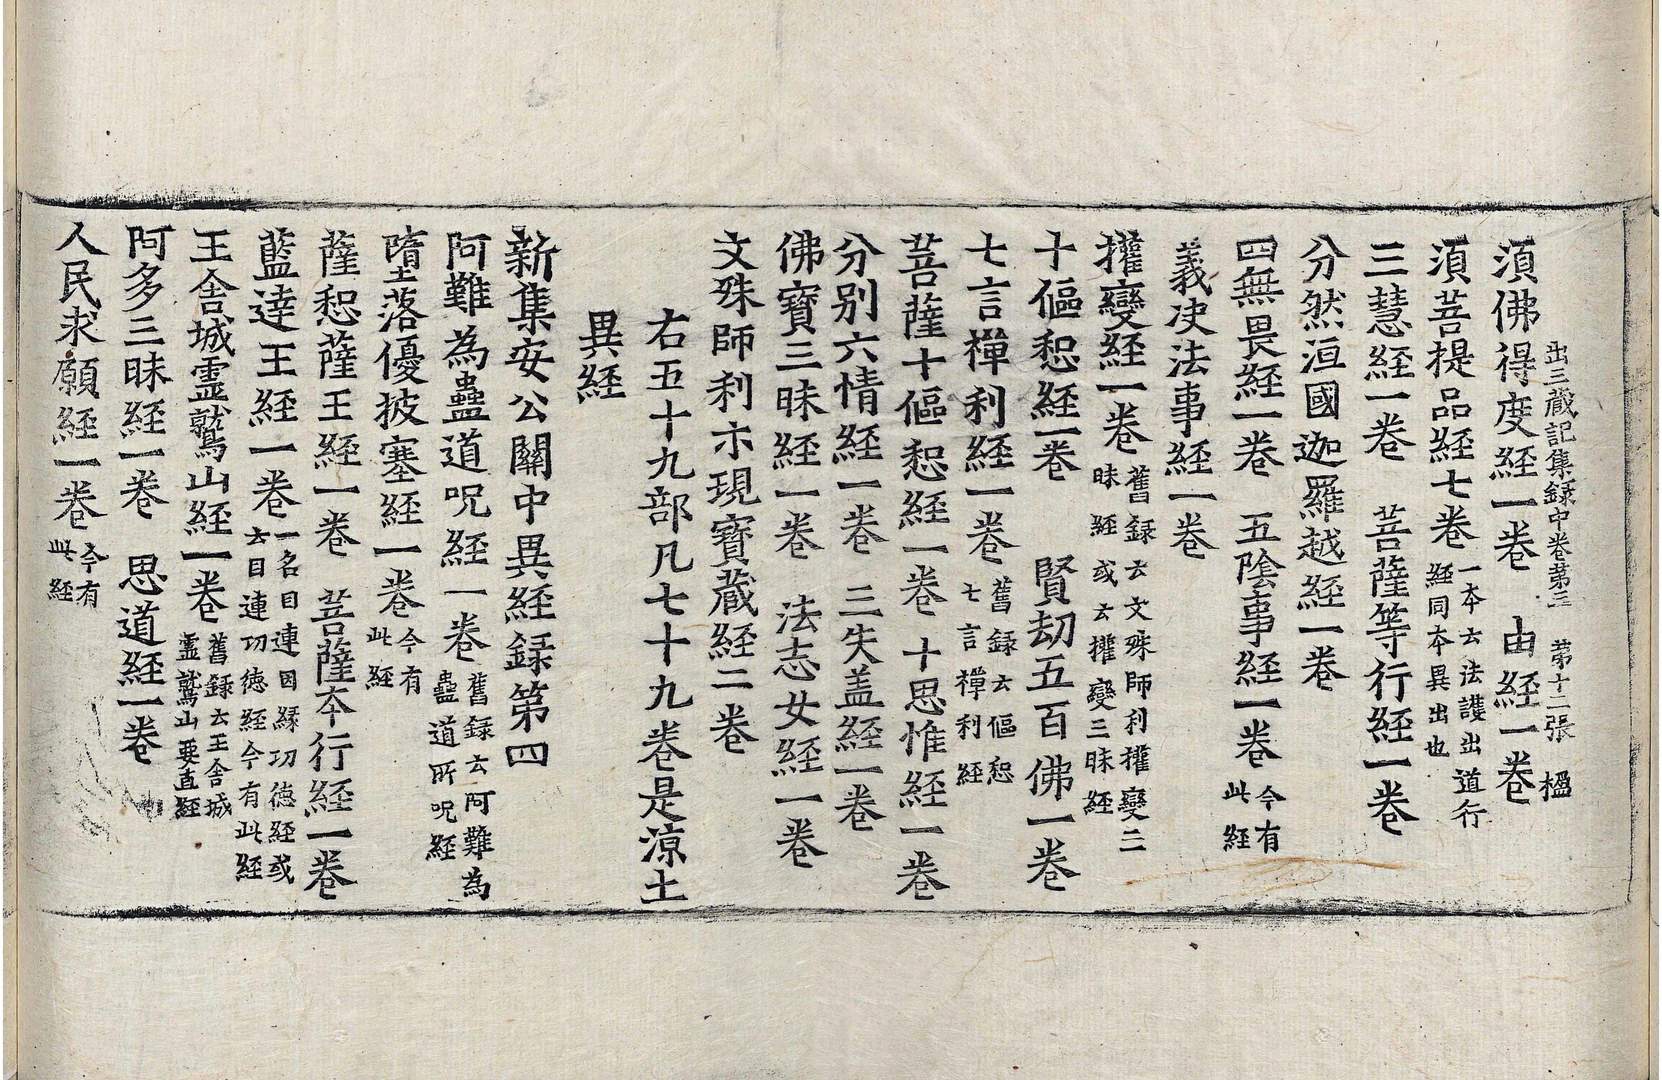 出三藏記集録中卷第三 第十二張 楹
湏佛得度經一卷 由經一卷
湏菩提品經七卷 一夲云法護出道行 經同本異出也
三慧經一卷 菩薩等行經一卷
分然洹國迦羅越經一卷
四無畏經一卷 五陰事經一卷 今有 此經
義决法事經一卷
權變經一卷 舊録云文殊師利權變三 昧經或云權變三昧經
十傴惒經一卷 賢劫五百佛一卷
七言禪利經一卷 舊録云傴惒 七言禪利經
菩薩十傴惒經一卷 十思惟經一卷
分別六情經一卷 三失盖經一卷
佛寶三昧經一卷 法志女經一卷
文殊師利示現寶藏經二卷
右五十九部凡七十九卷是涼土
異經
新集安公關中異經録第四
阿難為蠱道呪經一卷 舊録云阿難為 蠱道所呪經
墮落優披塞經一卷 今有 此經
薩惒薩王經一卷 菩薩夲行經一卷
藍達王經一卷 一名目連因縁功德經或 云目連功德經今有此經
王舍城靈鷲山經一卷 舊録云王舍城 靈鷲山要直經
阿多三昧經一卷 思道經一卷
人民求願經一卷 今有 此經